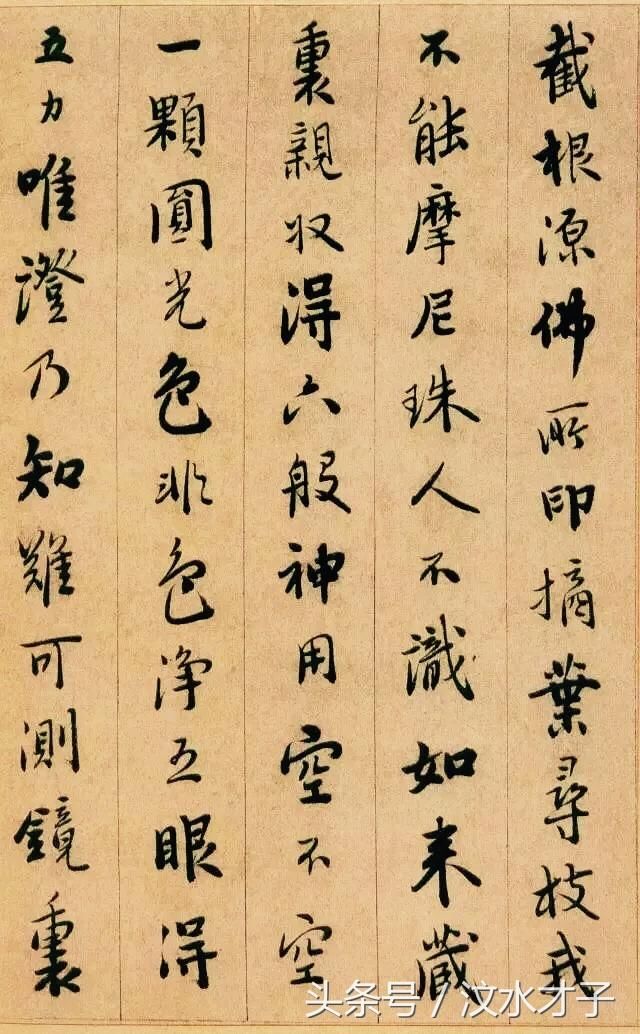 截根源佛所印摘葉尋枝我
不能摩尼珠人不識如来藏
裏親収得六般神用空不空
一顆圓光色非色淨五眼得
五力唯澄乃知難可測鏡裏
头条号／汶水才子